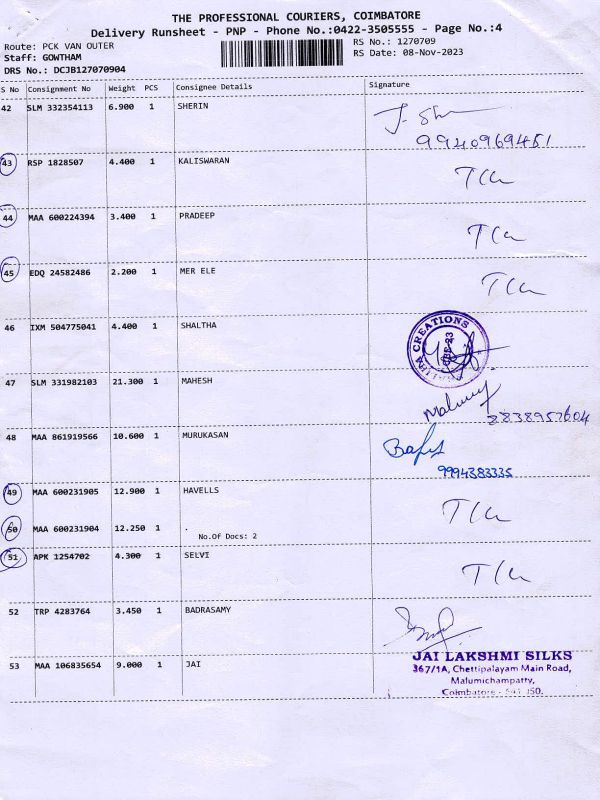 THE PROFESSIONAL COURIERS, COIMBATORE
Delivery Runsheet - PNP - Phone No.:0422-3505555 - Page No.:4
Route: PCK VAN OUTER
RS No.: 1270709
Staff: GOWTHAM
RS Date: 08-Nov-2023
DRS No.: DCJB127070904
S No Consignment No Weight PCS Consignee Details Signature
42 SLM 332354113 6.900 1 SHERIN
9940969451
43 RSP 1828507 4.400 1 KALISWARAN
44 MAA 600224394 3.400 1 PRADEEP
45 EDQ 24582486 2.200 1 MER ELE
46 IXM 504775041 4.400 1 SHALTHA
CREATIONS
47 SLM 331982103 21.300 1 MAHESH
48 MAA 861919566 10.600 1 MURUKASAN
9994383335
49 MAA 600231905 12.900 1 HAVELLS
50 MAA 600231904 12.250 1 .
No.Of Docs: 2
51 APK 1254702 4.300 1 SELVI
52 TRP 4283764 3.450 1 BADRASAMY
53 MAA 106835654 9.000 1 JAI
JAI LAKSHMI SILKS
367/1A, Chettipalayam Main Road,
Malumichampatty,
Coimbatore -